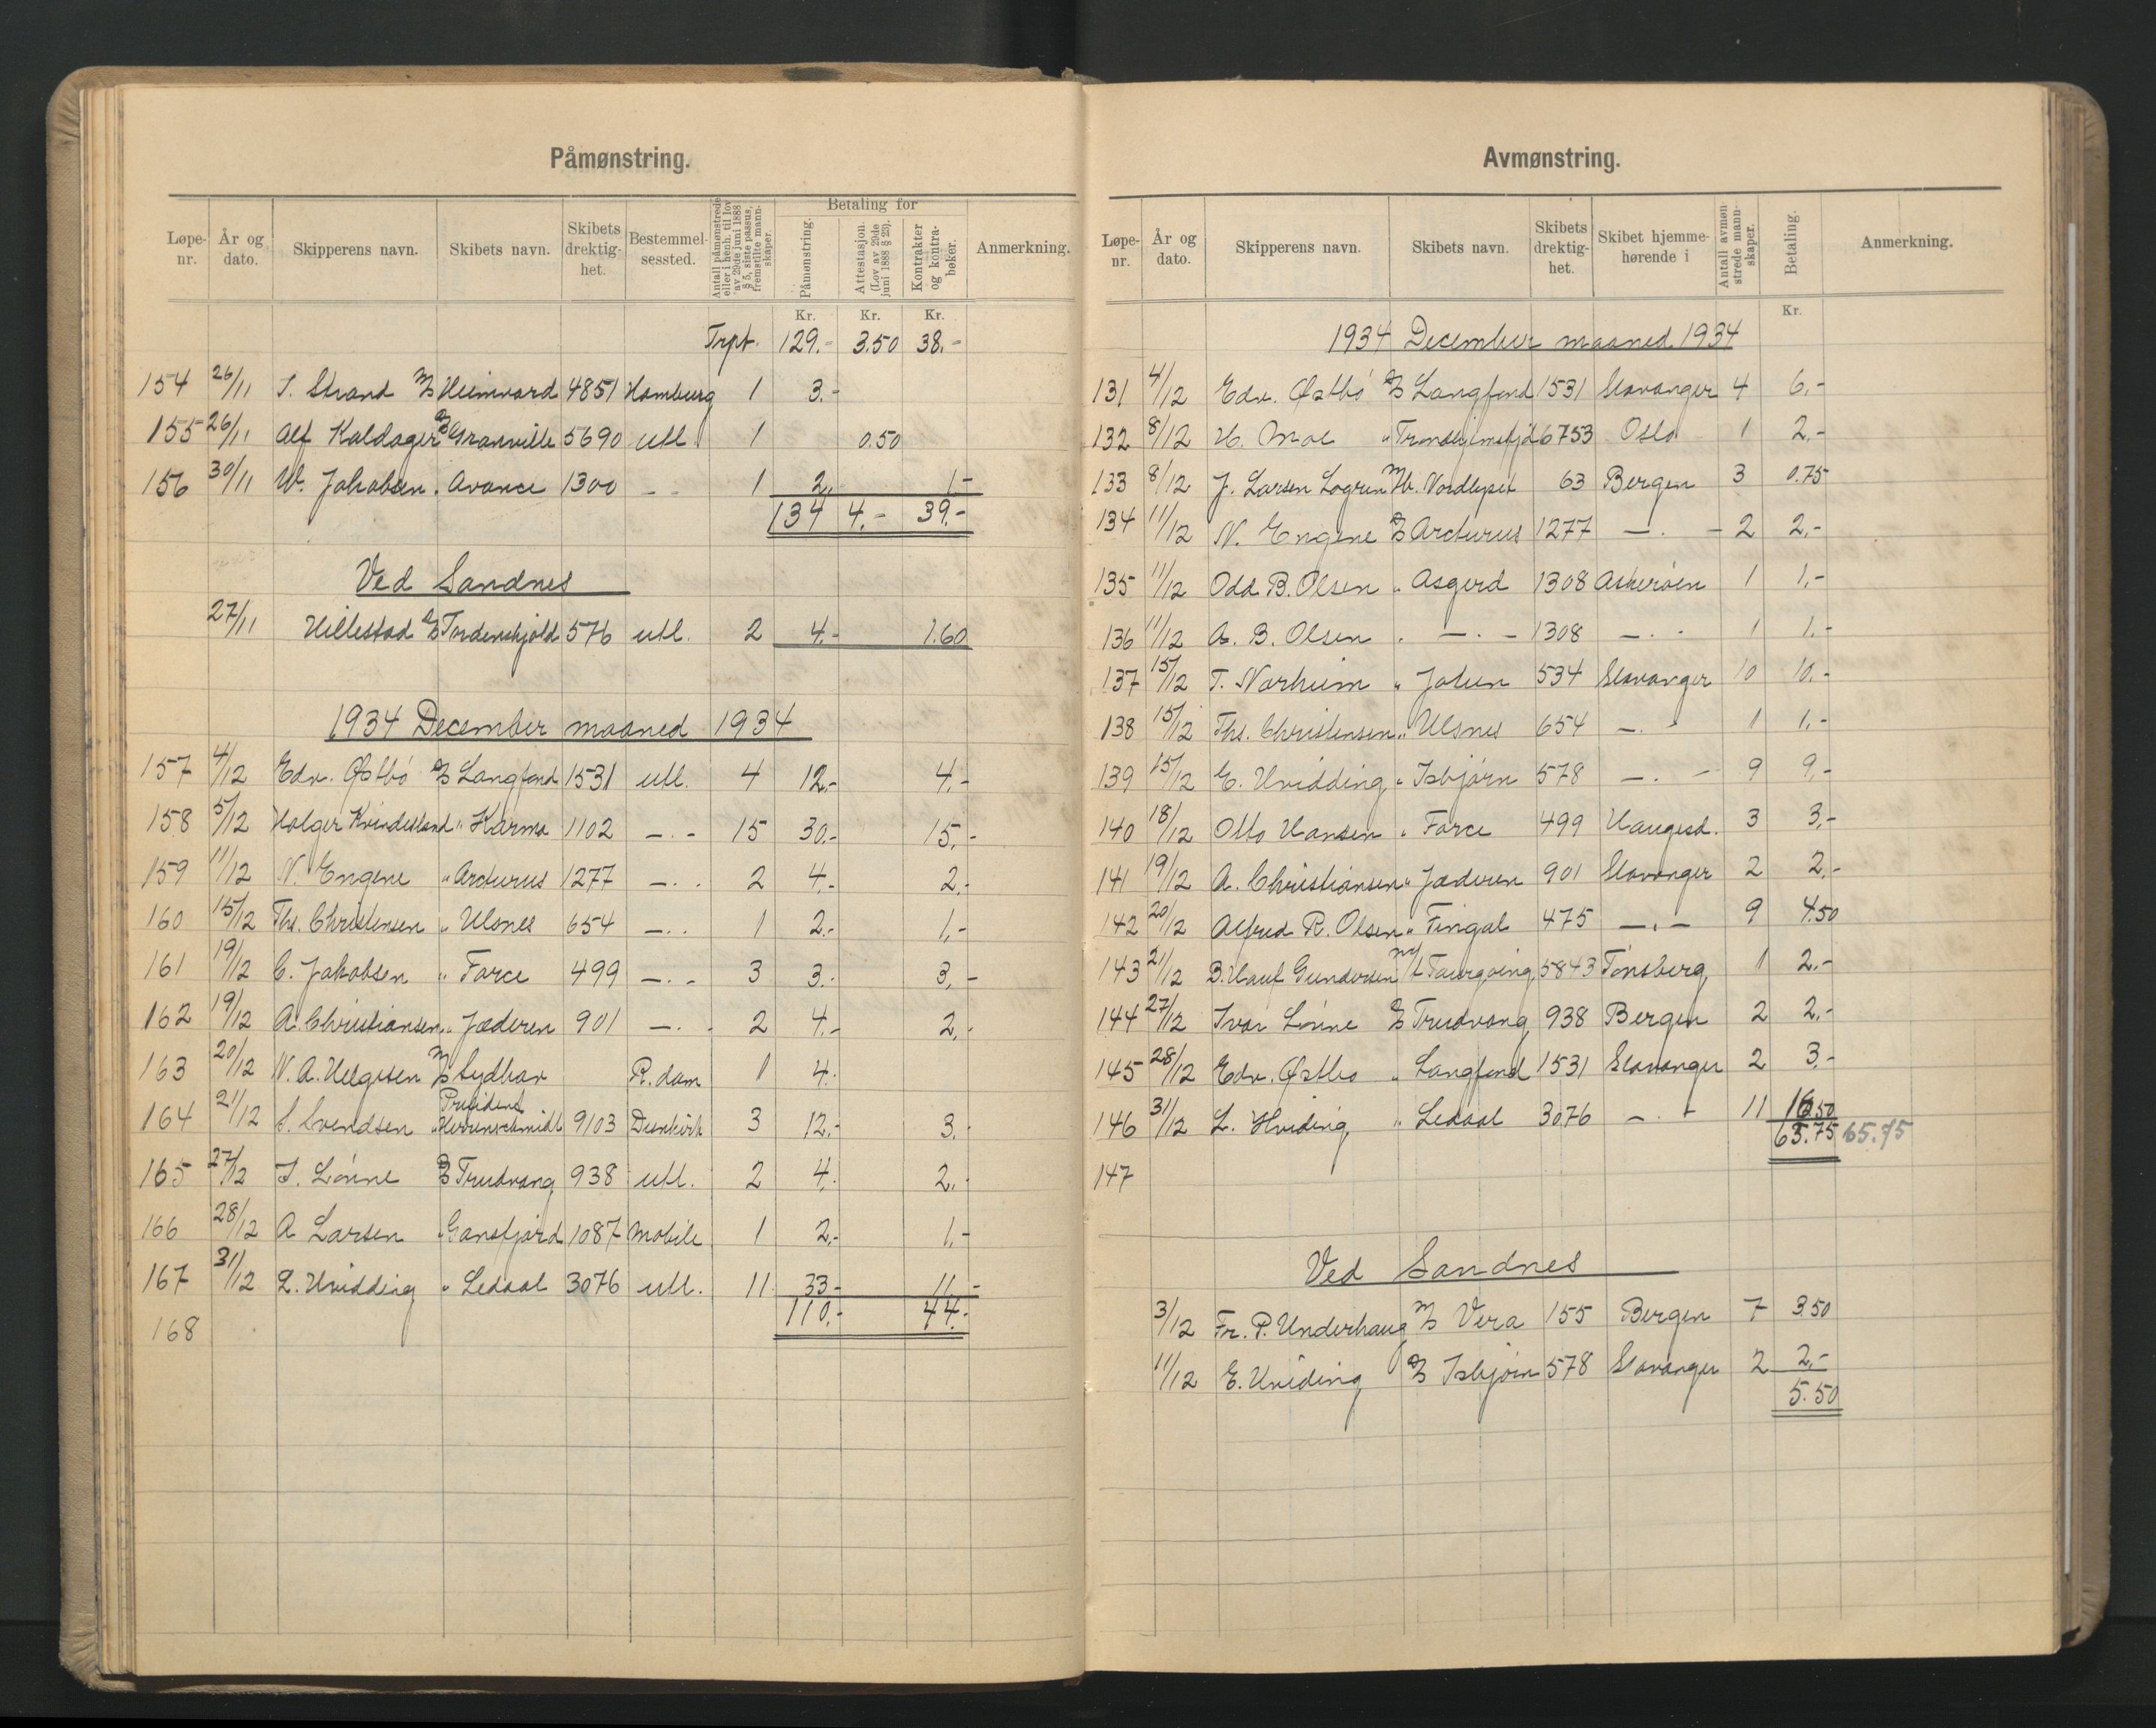 Påmønstring.
Løpe-nr. År og dato. Skipperens navn. Skibets navn. Skibets drektig-het. Bestemmel-sessted. Antall påmønstrede eller i henh. til lov av 29de juni 1888 § 5, siste passus, fremstilte mann-skaper. Betaling for Påmønstring. Attestasjon. (Lov av 29de juni 1888 § 23). Kontrakter og kontra-bøker. Anmerkning.
Kr. Kr. Kr.
Trpt. 129.- 3.50 38.-
154 26/11 S. Strand M/S Heimvard 4851 Hamburg 1 3.-
155 26/11 Alf Kaldager D/S Granville 5690 utl. 1 0.50
156 30/11 W. Jakobsen " Avance 1300 - - 1 2,- 1.-
134 4.- 39.-
Ved Sandnes
27/11 Hillestad D/S Tordenskjold 576 utl. 2 4.- 1.60
1934 December maaned 1934
157 4/12 Edv. Østbö D/S Langfond 1531 utl. 4 12.- 4.-
158 5/12 Holger Kvindesland " Karmo 1102 -.- 15 30.- 15,-
159 11/12 N. Engene " Arcturus 1277 -.- 2 4,- 2,-
160 15/12 Ths. Christensen " Ulsnes 654 -.- 1 2.- 1,-
161 19/12 C. Jakobsen " Farce 499 -.- 3 3.- 3,-
162 19/12 A. Christiansen " Jæderen 901 -.- 2 4.- 2,-
163 20/12 N. A. Helgesen M/S Sydhav R.dam 1 4.-
164 21/12 S. Svendsen " President Herrenschmidt 9103 Dunkirk 3 12.- 3.-
165 27/12 I. Lönne D/S Trudvang 938 utl. 2 4.- 2.-
166 28/12 A Larsen " Gansfjord 1087 Mobile 1 2,- 1,-
167 31/12 L. Hvidding " Ledaal 3076 utl. 11 33.- 11.-
110.- 44.-
168
Avmønstring.
Løpe-nr. År og dato. Skipperens navn. Skibets navn. Skibets drektig-het. Skibet hjemme-hørende i Antall avmøn-strede mann-skaper. Betaling. Anmerkning.
Kr.
1934 December maaned 1934
131 4/12 Edv. Østbö D/S Langfond 1531 Stavanger 4 6,-
132 8/12 H. Moe " Trondhjemsfjd 6753 Oslo 1 2,-
133 8/12 J. Larsen Logren M/k. Nordlyset 63 Bergen 3 0.75
134 11/12 N. Engene D/S Arcturus 1277 -.- 2 2,-
135 11/12 Odd B. Olsen " Asgerd 1308 Askeröen 1 1,-
136 11/12 A. B. Olsen " -.- 1308 -.- 1 1.-
137 15/12 T. Norheim " Jolun 534 Stavanger 10 10.-
138 15/12 Ths. Christensen " Ulsnes 654 -.- 1 1,-
139 15/12 E. Hvidding " Isbjörn 578 -.- 9 9,-
140 18/12 Otto Hansen " Farce 499 Haugesd. 3 3,-
141 19/12 A. Christiansen " Jæderen 901 Stavanger 2 2,-
142 20/12 Alfred R. Olsen " Fingal 475 -.- 9 4.50
143 21/12 B. Hauf Gundersen M/t Thorgoing 5843 Tönsberg 1 2.-
144 27/12 Ivar Lönne D/S Trudvang 938 Bergen 2 2,-
145 28/12 Edv. Østbö " Langfond 1531 Stavanger 2 3.-
146 31/12 L. Hviding " Ledaal 3076 -.- 11 16.50
65.75 65.75
147
Ved Sandnes
3/12 Fr. P. Underhaug M/S Vera 155 Bergen 7 3.50
11/12 E. Hviding D/S Isbjörn 578 Stavanger 2 2,-
5.50